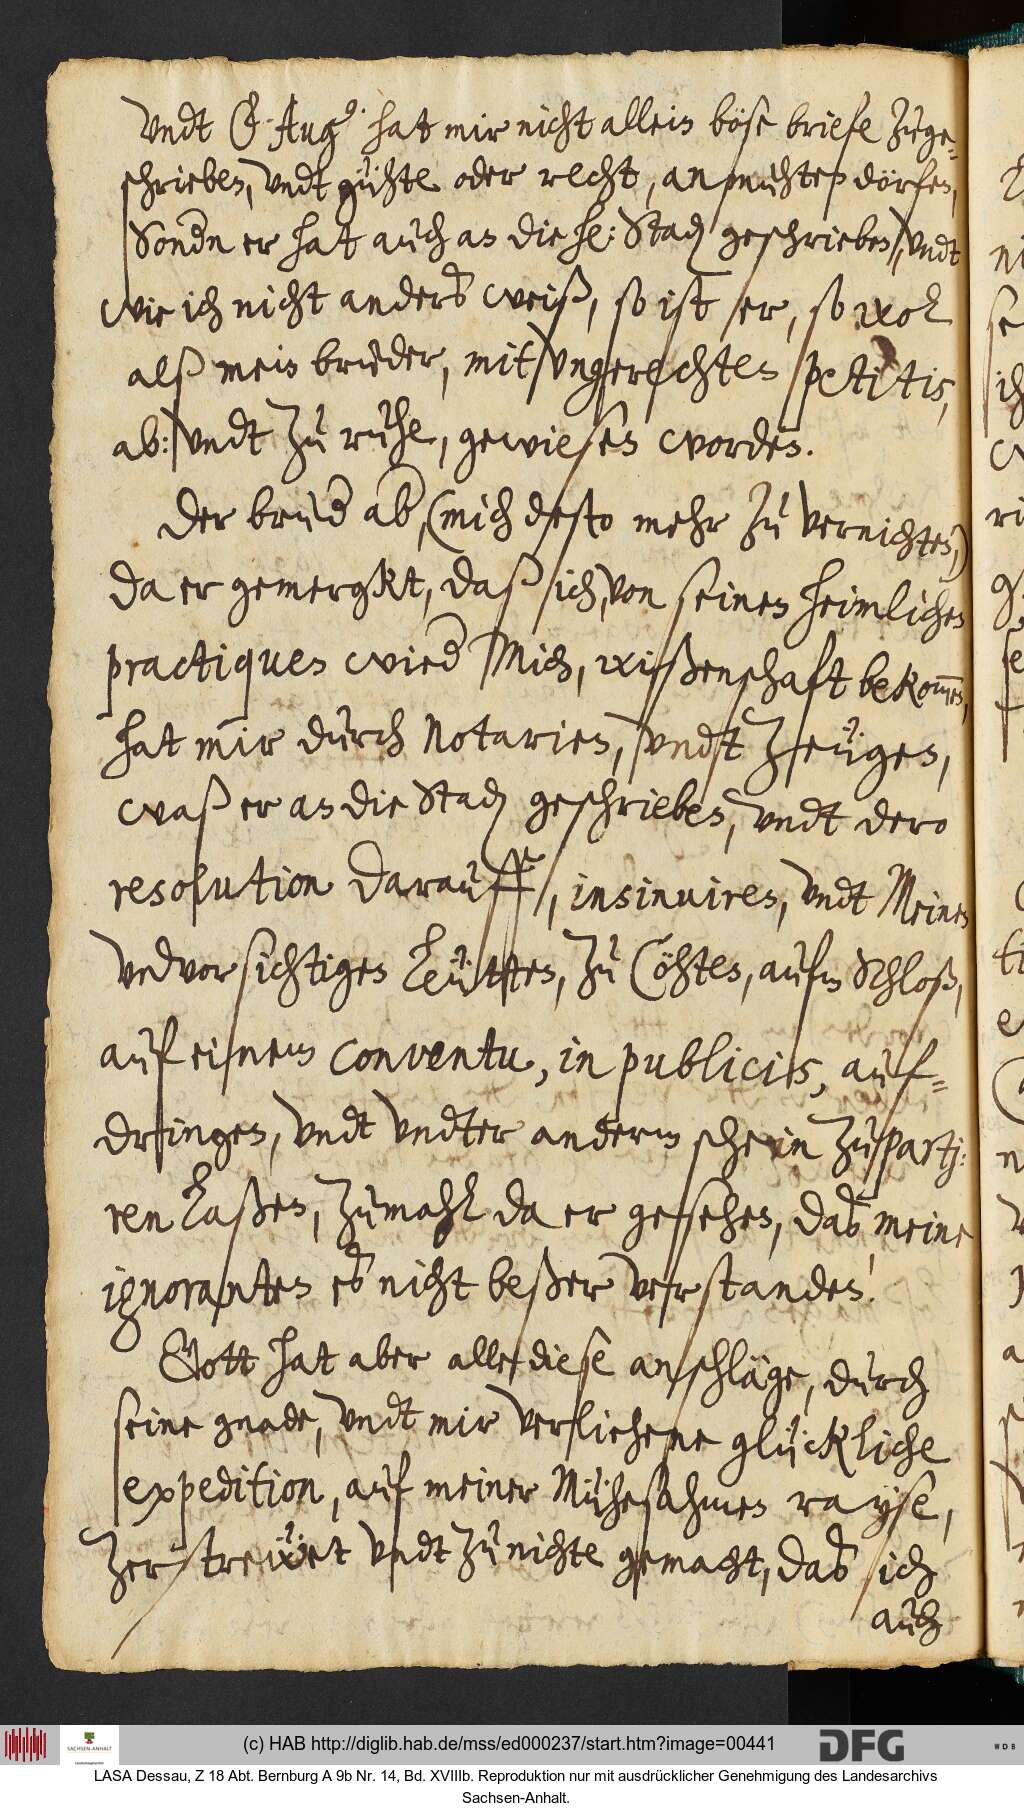 Vndt G. Aug9. hat mir nicht allein böse briefe zuge-
schrieben, vndt gühte oder recht, anmuhten dörfen,
Sondn er hat auch an die hl: Stad geschrieben, vndt
wie ich nicht anders weiß, so ist er, so wol
alß mein bruder, mit vngerechten petitis,
ab: vndt zu ruhe, gewiesen worden.
Der brud ab, (mich desto mehr zu vernichten,)
da er gemergkt, daß ich, von seinen heimlichen
practiquen wied Mich, wißenschaft bekom̅en,
hat mir durch Notarien, vndt Zeügen,
waß er an die Stad geschrieben, vndt dero
resolution darauff, insinuiren, vndt Meinen
vnvorsichtigen Leütten, zu Cöhten, aufm Schloß,
auf einem conventu, in publicis, auf-
dringen, vndt vndter anderm schein zu partj:
ren laßen, zumahl da er gesehen, das meine
ignoranten es nicht beßer verstanden!
Gott hat aber alle diese anschläge, durch
seine gnade, vndt mir verliehene glückliche
expedition, auf meiner Mühesahmen rayse,
zerstreüwet vndt zu nichte gemacht, das ich
auch
(c) HAB http://diglib.hab.de/mss/ed000237/start.htm?image=00441
SACHSEN-ANHALT
DFG
WDB
LASA Dessau, Z 18 Abt. Bernburg A 9b Nr. 14, Bd. XVIIIb. Reproduktion nur mit ausdrücklicher Genehmigung des Landesarchivs
Sachsen-Anhalt.